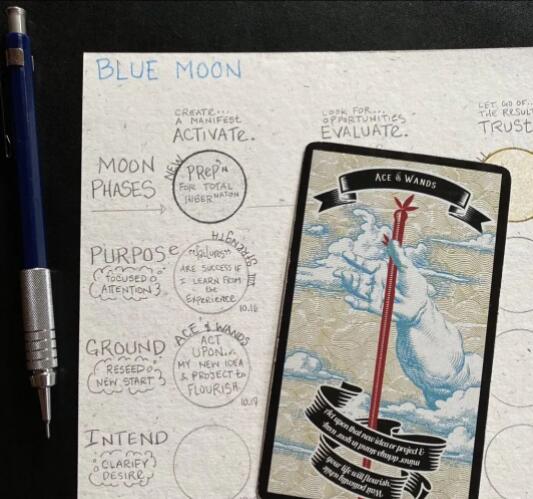 BLUE MOON
CREATE...
A MANIFEST
ACTIVATE.
LOOK FOR...
OPPORTUNITIES
EVALUATE.
LET GO OF...
THE RESULT
TRUST
MOON
PHASES
NEW
PREP'N
FOR TOTAL
HIBERNATION
PURPOSE
FOCUSED
ATTENTION
STRENGTH
VIII
"failures"
ARE SUCCESS IF
I LEARN FROM
the
EXPERIENCE.
10.16
GROUND
RESEED
NEW START
ACE of WANDS
ACT
UPON...
MY NEW IDEA
& PROJECT to
FLOURISH.
10.17
INTEND
CLARIFY
DESIRE
ACE of WANDS
Act upon that new idea or project &
your life will flourish.